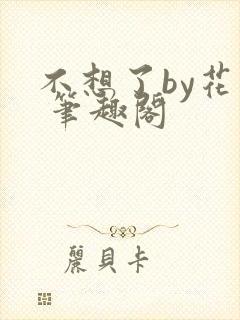 不想了by花
筆趣閣
麗貝卡